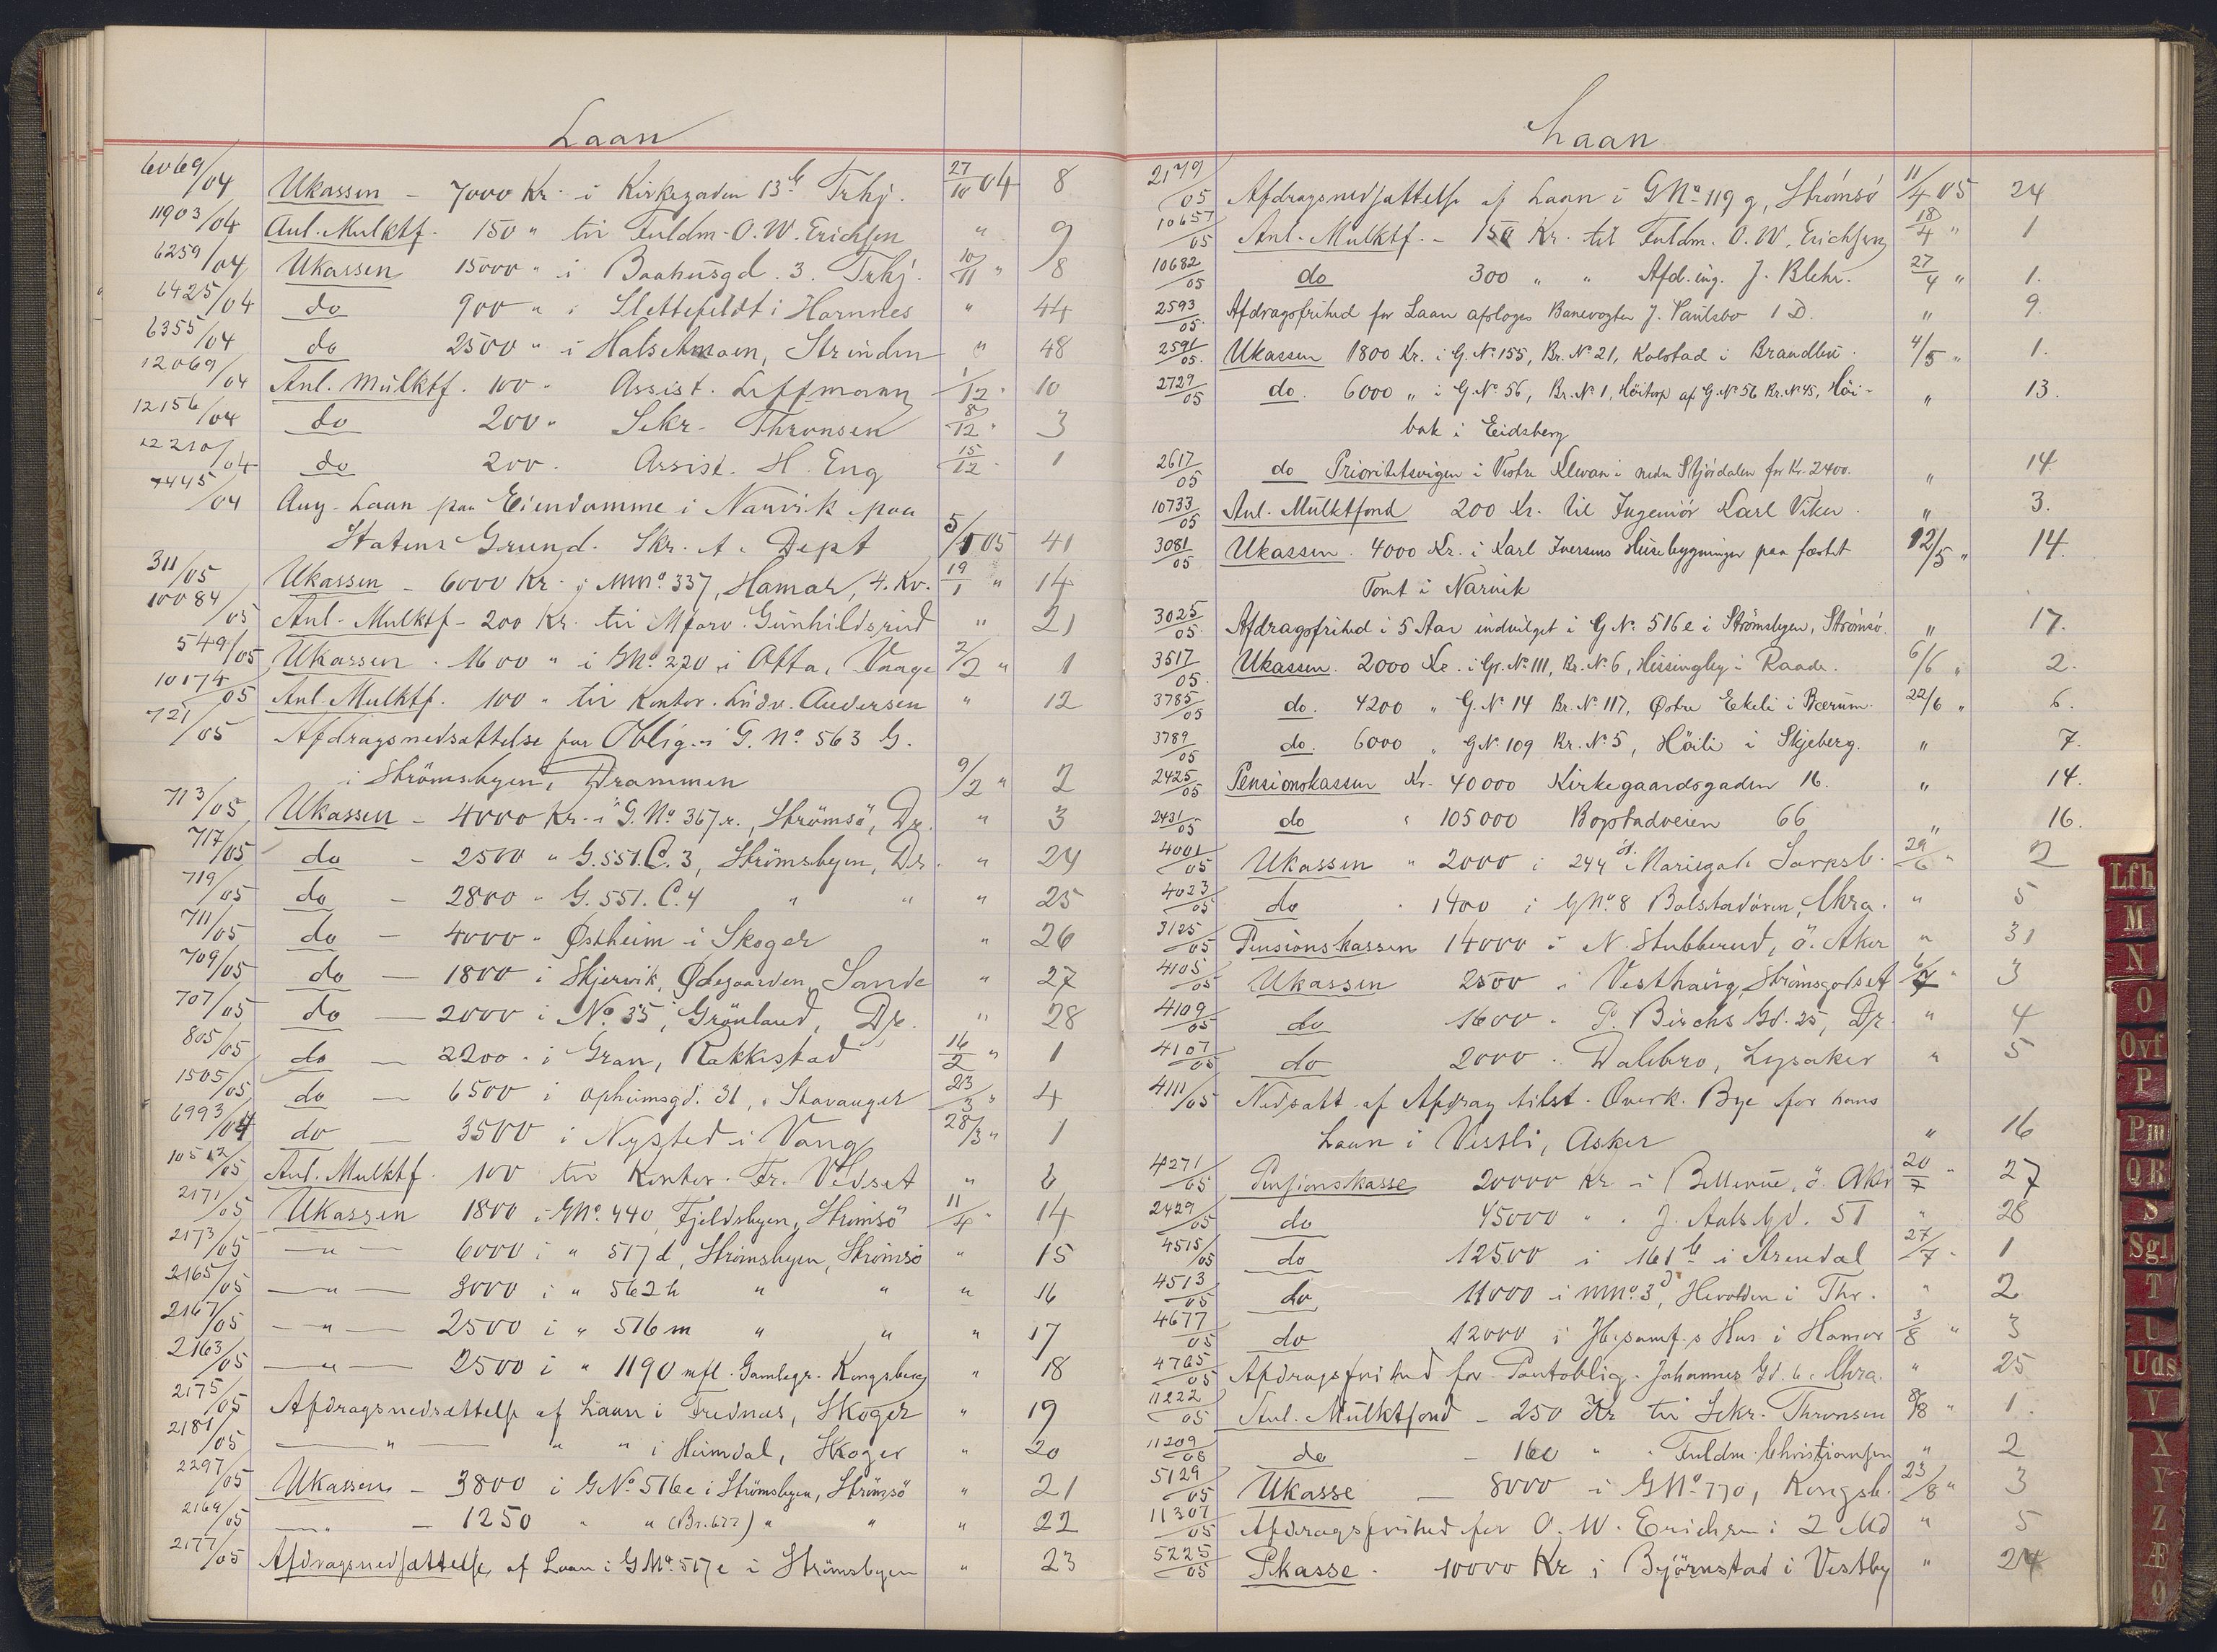 Laan
6069/04 Ukassen - 7000 Kr. i Kirkegaden 13 b Trhj. 27/10 04 8
11903/04 Anl. Mulktf. 150 " til Fuldm. O. W. Erichsen " 9
6259/04 Ukassen 15000 " i Baahusgd. 3. Trhj. 10/11 " 8
6425/04 do 900 " i Slettefeldt i Hornnes " 44
6355/04 do 2500 " i Halsetmoen, Strinden " 48
12069/04 Anl. Mulktf. 100 " Assist. Liffmann 1/12 " 10
12156/04 do 200 " Sekr. Thronsen 8/12 " 3
12210/04 do 200 . Assist. H. Eng 15/12 " 1
7445/04 Ang. Laan paa Eiendomme i Narvik paa
Statens Grund. Skr. A. Dept 5/1 05 41
311/05 Ukassen - 6000 Kr. i MNo. 337, Hamar, 4. Kv. 19/1 " 14
10084/05 Anl. Mulktf. - 200 Kr. til Mforv. Gunhildsrud " 21
549/05 Ukassen . 1600 " i GNo. 220 i Otta, Vaage 2/2 " 1
10174/05 Anl. Mulktf. 100 " til Kontor. Ludv. Andersen " 12
721/05 Afdragsnedsættelse for Oblig. i G. No 563 G.
i Strömsbyen, Drammen 9/2 " 2
713/05 Ukassen - 4000 Kr. i G. No. 367 r., Strömsö, Dr. " 3
717/05 do - 2500 " G. 551. C. 3, Strömsbyen, Dr. " 24
719/05 do - 2800 " G. 551. C. 4 " " " 25
711/05 do - 4000 " Østheim i Skoger " 26
709/05 do - 1800 i Skjervik, Ødegaarden, Sande " 27
707/05 do - 2000 i No. 35, Grönland, Dr. " 28
805/05 do - 2200 . i Gran, Rakkestad 16/2 " 1
1505/05 do - 6500 i Opheimsgd. 31, Stavanger 23/3 " 4
6993/04 do - 3500 i Nysted i Vang 28/3 " 1
10512/05 Anl. Mulktf. 100 til Kontor. Fr. Vedset " 6
2171/05 Ukassen 1800 i GNo. 440, Fjeldsbyen, Strömsö 11/4 " 14
2173/05 — " — 6000 i " 517 d, Strömsbyen, Strömsö " 15
2165/05 — " — 3000 i " 562 h " " " 16
2167/05 — " — 2500 i " 516 m " " " 17
2163/05 — " — 2500 i " 1190 mfl. Gamlegr. Kongsberg " 18
2175/05 Afdragsnedsættelse af Laan i Frednes, Skoger " 19
2181/05 — " — " " i Heimdal, Skoger " 20
2297/05 Ukassen - 3800 i GNo. 516 e i Strömsbyen, Strömsö " 21
2169/05 — " - 1250 " " (Br. 677) " " " 22
2177/05 Afdragsnedsættelse af Laan i GNo. 517 e i Strömsbyen " 23
Laan
2179/05 Afdragsnedsættelse af Laan i GNo. 119 g, Strömsö 11/4 05 24
10657/05 Anl. Mulktf. - 150 Kr. til Fuldm. O. W. Erichsen 18/4 " 1
10682/05 do 300 " " Afd. ing. J. Blehr. 27/4 " 1.
2593/05 Afdragsfrihed for Laan afsloges Banevogter J. Paulsbo 1 D. " 9.
2591/05 Ukassen 1800 Kr. i G. No. 155, Br. No. 21, Kolstad i Brandbu. 4/5 " 1.
2729/05 do. 6000 " i G. No 56, Br. No 1, Höitorp af G. No 56 Br. No 45, Höi-
bak i Eidsberg " 13.
2617/05 do Prioritetsvigen i Vestre Klevan i nedre Stjördalen for Kr. 2400. " 14
10733/05 Anl. Mulktfond 200 Kr. til Ingeniör Karl Viker . " 3.
3081/05 Ukassen. 4000 Kr. i Karl Iversens Husebygninger paa fæstet 12/5 " 14.
Tomt i Narvik
3025/05 Afdragsfrihed i 5 Aar indvilget i G No. 516 e i Strömsbyen, Strömsö. " 17.
3517/05 Ukassen. 2000 Kr. i G. No. 111, Br. No. 6, Hissingby i Raade. 6/6 " 2.
3785/05 do. 4200 " G. No 14 Br. No 117, Østre Ekeli i Bærum. 22/6 " 6.
3789/05 do. 6000 " G No. 109 Br. No. 5, Höili i Skjeberg. " 7.
2425/05 Pensionskassen Kr. 40000 Kirkegaardsgaden 16. " 14.
2431/05 do " 105000 Bogstadveien 66 " 16.
4001/05 Ukassen " 2000 i 244 d i Mariegade Sarpsb. 29/6 " 2
4023/05 do " 1400 i GNo. 8 Bolstadösen, Chra. " 5
3125/05 Pensionskassen 14000 i N. Stubberud, ö. Aker " 31
4105/05 Ukassen 2500 i Vesthaug, Strömsgodset 6/7 " 3
4109/05 do 1600 . P. Birchs Gd. 25, Dr. " 4
4107/05 do 2000 . Dalebro, Lysaker " 5
4111/05 Nedsatt. af Afdrag tilst. Overk. Bye for hans
Laan i Vestli, Asker " 16
4271/05 Pensionskasse 20000 Kr. i Bellevue, ö. Aker 20/7 " 27
2429/05 do 45000 " . J. Aals Gd. 51 " 28
4515/05 do 12500 i 161 b i Arendal 27/7 " 1
4513/05 do 11000 i MNo. 3 d, Hevolden i Thr. " 2
4677/05 do 12000 i Hus i Hamar 3/8 " 3
4765/05 Afdragsfrihed for Pantoblig. Johannes Gd. 6. Chra. " 25
11222/05 Anl. Mulktfond - 250 Kr til Sekr. Thronsen 8/8 " 1.
11209/05 do - 160 " " Fuldm. Christiansen " 2
5129/05 Ukasse - 8000 i GNo. 770, Kongsb. 23/8 " 3
11307/05 Afdragsfrihed for O. W. Erichsen i 2 Md " 5
5225/05 Pkasse. 10000 Kr i Björnstad i Vestby " 24
Lfh
M
N
O
Ovf
P
Pm
Q R
S
Sgl
T
U
Uds
V
X
Y
Z
Æ
Ø